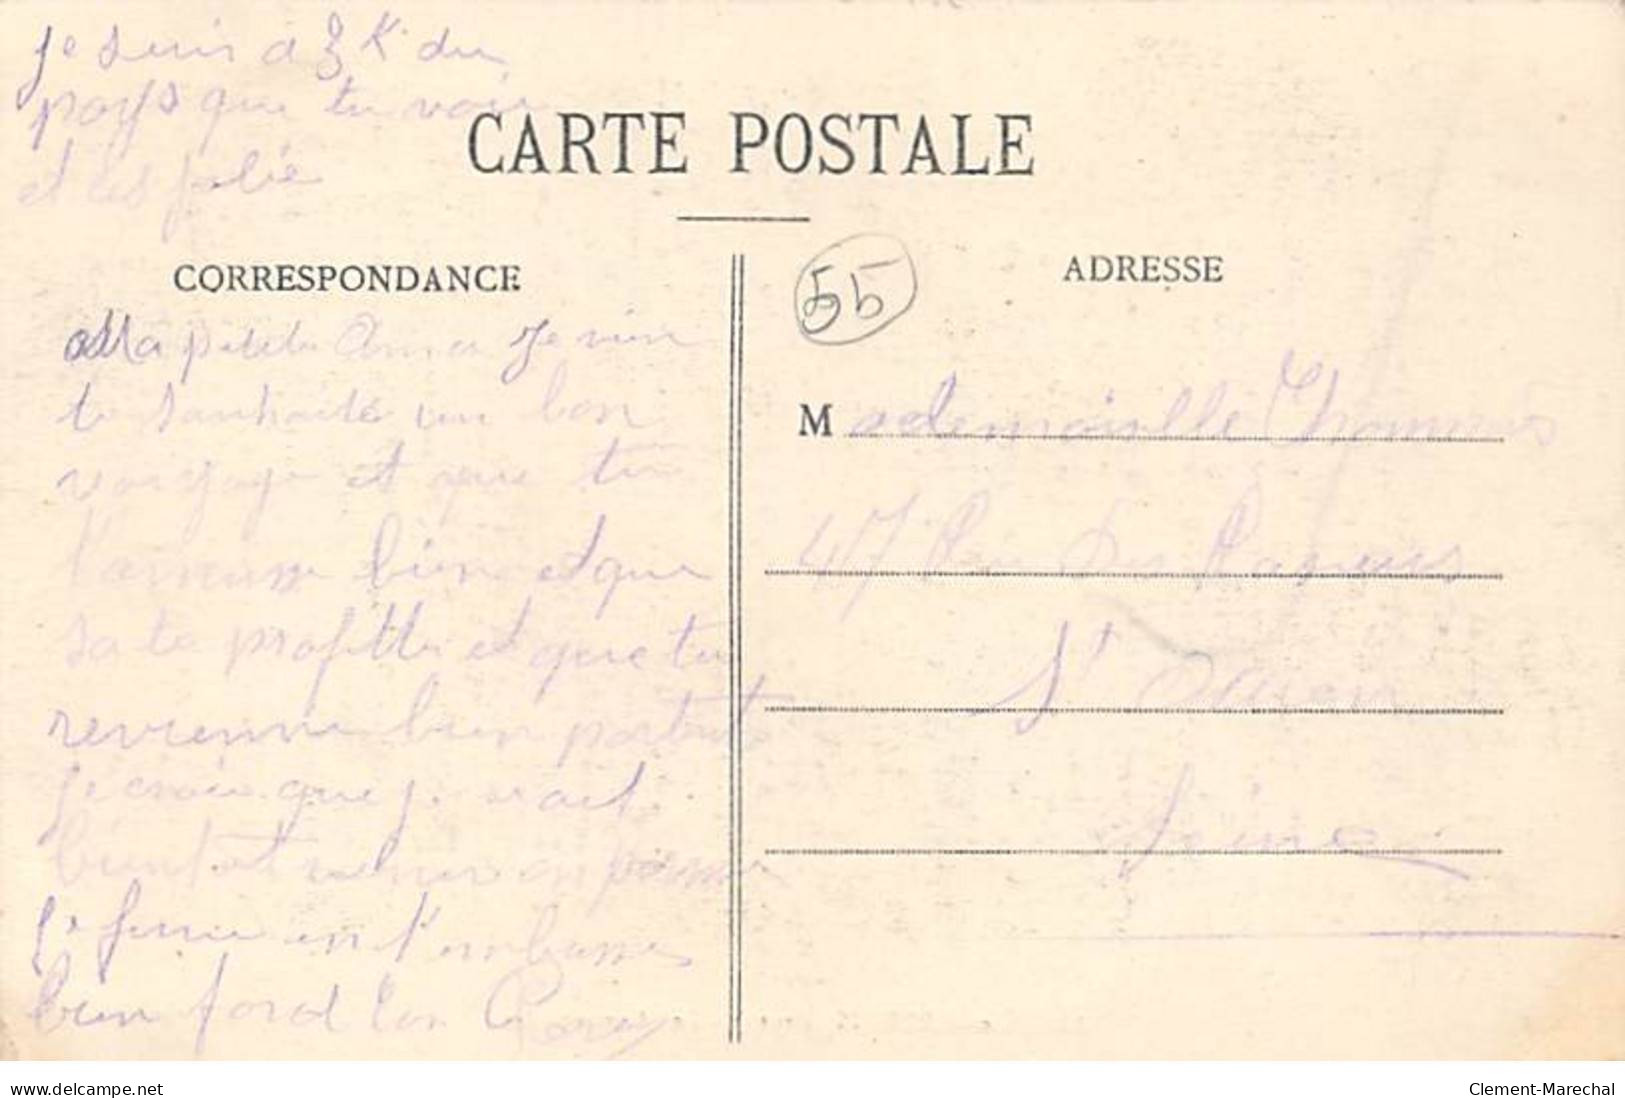 je suis a 3 K. du
pays que tu vois
et les jolie
CARTE POSTALE
CORRESPONDANCE
ADRESSE
55
Ma petite Anna Je vien
te souhaité un bon
voiyage et que tu
t'amuse bien et que
sa te profitte et que tu
revienne bien portante
je crois que je vait
bientot en perme
Je ferme en t'embrasse
bien ford ton
Mademoiselle Thommas
47 Rue des
St
Seine
www.delcampe.net
Clement-Marechal